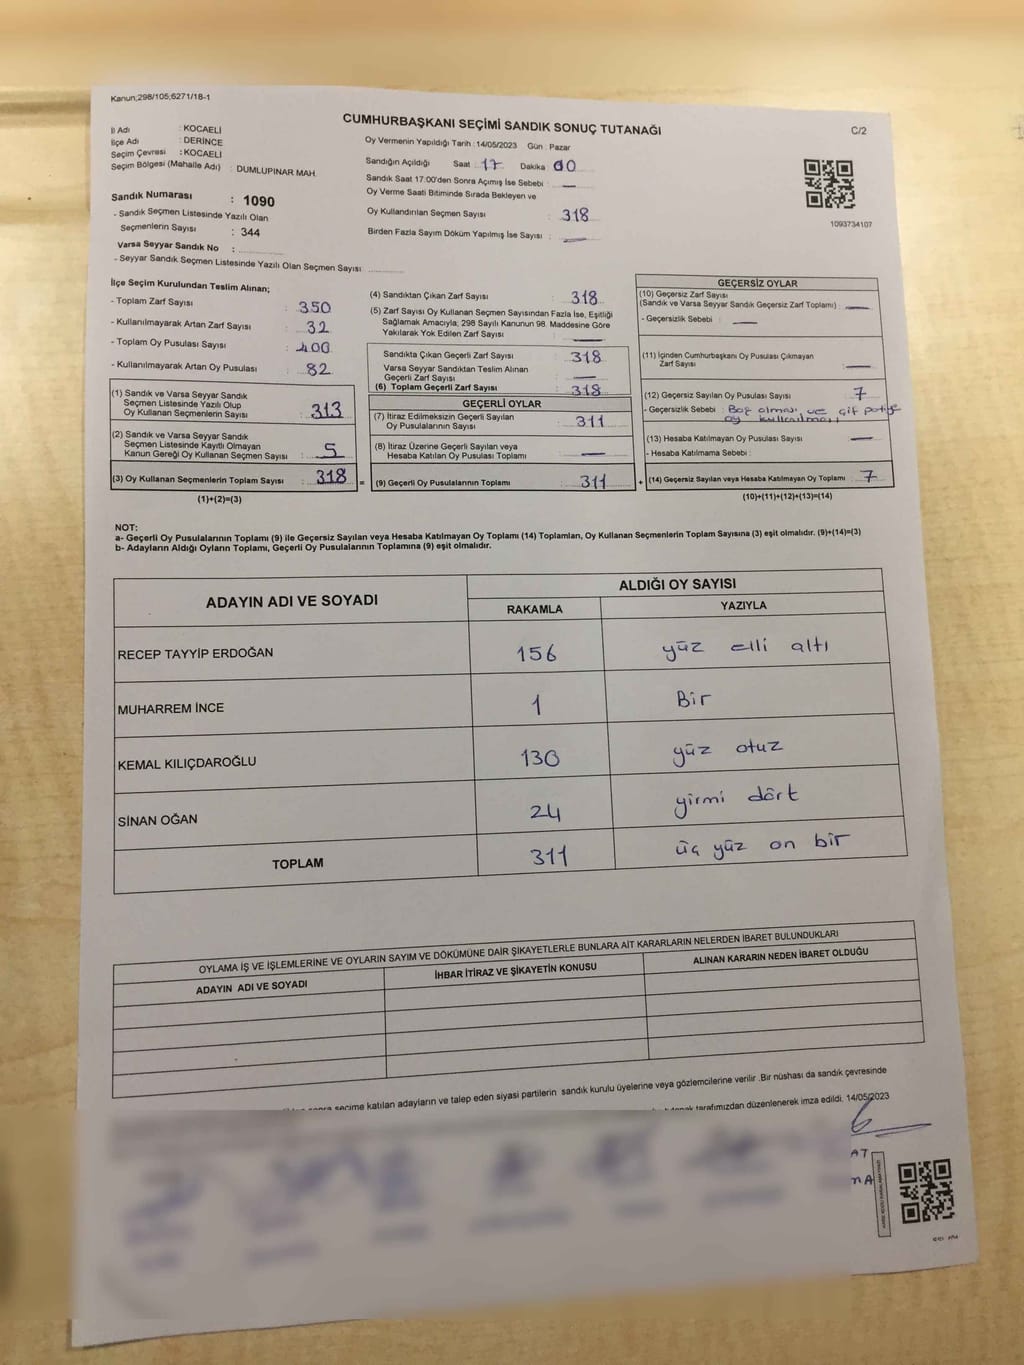 Kanun;298/105;6271/18-1
CUMHURBAŞKANI SEÇİMİ SANDIK SONUÇ TUTANAĞI
C/2
İl Adı : KOCAELİ
İlçe Adı : DERİNCE
Seçim Çevresi : KOCAELİ
Seçim Bölgesi (Mahalle Adı) : DUMLUPINAR MAH.
Sandık Numarası : 1090
- Sandık Seçmen Listesinde Yazılı Olan
Seçmenlerin Sayısı : 344
Varsa Seyyar Sandık No :
- Seyyar Sandık Seçmen Listesinde Yazılı Olan Seçmen Sayısı
Oy Vermenin Yapıldığı Tarih : 14/05/2023 Gün : Pazar
Sandığın Açıldığı Saat : 17 Dakika 00
Sandık Saat 17:00'den Sonra Açımış İse Sebebi : —
Oy Verme Saati Bitiminde Sırada Bekleyen ve
Oy Kullandırılan Seçmen Sayısı : 318
Birden Fazla Sayım Döküm Yapılmış İse Sayısı : —
1093734107
İlçe Seçim Kurulundan Teslim Alınan;
- Toplam Zarf Sayısı : 350
- Kullanılmayarak Artan Zarf Sayısı : 32
- Toplam Oy Pusulası Sayısı : 400
- Kullanılmayarak Artan Oy Pusulası : 82
(1) Sandık ve Varsa Seyyar Sandık
Seçmen Listesinde Yazılı Olup
Oy Kullanan Seçmenlerin Sayısı : 313
(2) Sandık ve Varsa Seyyar Sandık
Seçmen Listesinde Kayıtlı Olmayan
Kanun Gereği Oy Kullanan Seçmen Sayısı : 5
(3) Oy Kullanan Seçmenlerin Toplam Sayısı : 318 =
(1)+(2)=(3)
(4) Sandıktan Çıkan Zarf Sayısı : 318
(5) Zarf Sayısı Oy Kullanan Seçmen Sayısından Fazla İse, Eşitliği
Sağlamak Amacıyla; 298 Sayılı Kanunun 98. Maddesine Göre
Yakılarak Yok Edilen Zarf Sayısı : —
Sandıkta Çıkan Geçerli Zarf Sayısı : 318
Varsa Seyyar Sandıktan Teslim Alınan
Geçerli Zarf Sayısı : —
(6) Toplam Geçerli Zarf Sayısı : 318
GEÇERLİ OYLAR
(7) İtiraz Edilmeksizin Geçerli Sayılan
Oy Pusulalarının Sayısı : 311
(8) İtiraz Üzerine Geçerli Sayılan veya
Hesaba Katılan Oy Pusulası Toplamı : —
(9) Geçerli Oy Pusulalarının Toplamı : 311 +
GEÇERSİZ OYLAR
(10) Geçersiz Zarf Sayısı
(Sandık ve Varsa Seyyar Sandık Geçersiz Zarf Toplamı) : —
- Geçersizlik Sebebi : —
(11) İçinden Cumhurbaşkanı Oy Pusulası Çıkmayan
Zarf Sayısı : —
(12) Geçersiz Sayılan Oy Pusulası Sayısı : 7
- Geçersizlik Sebebi : Boş olması, ve çift partiye
oy kullanılması
(13) Hesaba Katılmayan Oy Pusulası Sayısı : —
- Hesaba Katılmama Sebebi :
(14) Geçersiz Sayılan veya Hesaba Katılmayan Oy Toplamı : 7
(10)+(11)+(12)+(13)=(14)
NOT:
a- Geçerli Oy Pusulalarının Toplamı (9) ile Geçersiz Sayılan veya Hesaba Katılmayan Oy Toplamı (14) Toplamları, Oy Kullanan Seçmenlerin Toplam Sayısına (3) eşit olmalıdır. (9)+(14)=(3)
b- Adayların Aldığı Oyların Toplamı, Geçerli Oy Pusulalarının Toplamına (9) eşit olmalıdır.
ADAYIN ADI VE SOYADI
ALDIĞI OY SAYISI
RAKAMLA YAZIYLA
RECEP TAYYİP ERDOĞAN 156 yüz elli altı
MUHARREM İNCE 1 Bir
KEMAL KILIÇDAROĞLU 130 yüz otuz
SİNAN OĞAN 24 yirmi dört
TOPLAM 311 üç yüz on bir
OYLAMA İŞ VE İŞLEMLERİNE VE OYLARIN SAYIM VE DÖKÜMÜNE DAİR ŞİKAYETLERLE BUNLARA AİT KARARLARIN NELERDEN İBARET BULUNDUKLARI
ADAYIN ADI VE SOYADI İHBAR İTİRAZ VE ŞİKAYETİN KONUSU ALINAN KARARIN NEDEN İBARET OLDUĞU
sonra seçime katılan adayların ve talep eden siyasi partilerin sandık kurulu üyelerine veya gözlemcilerine verilir .Bir nüshası da sandık çevresinde
tarafımızdan düzenlenerek imza edildi. 14/05/2023